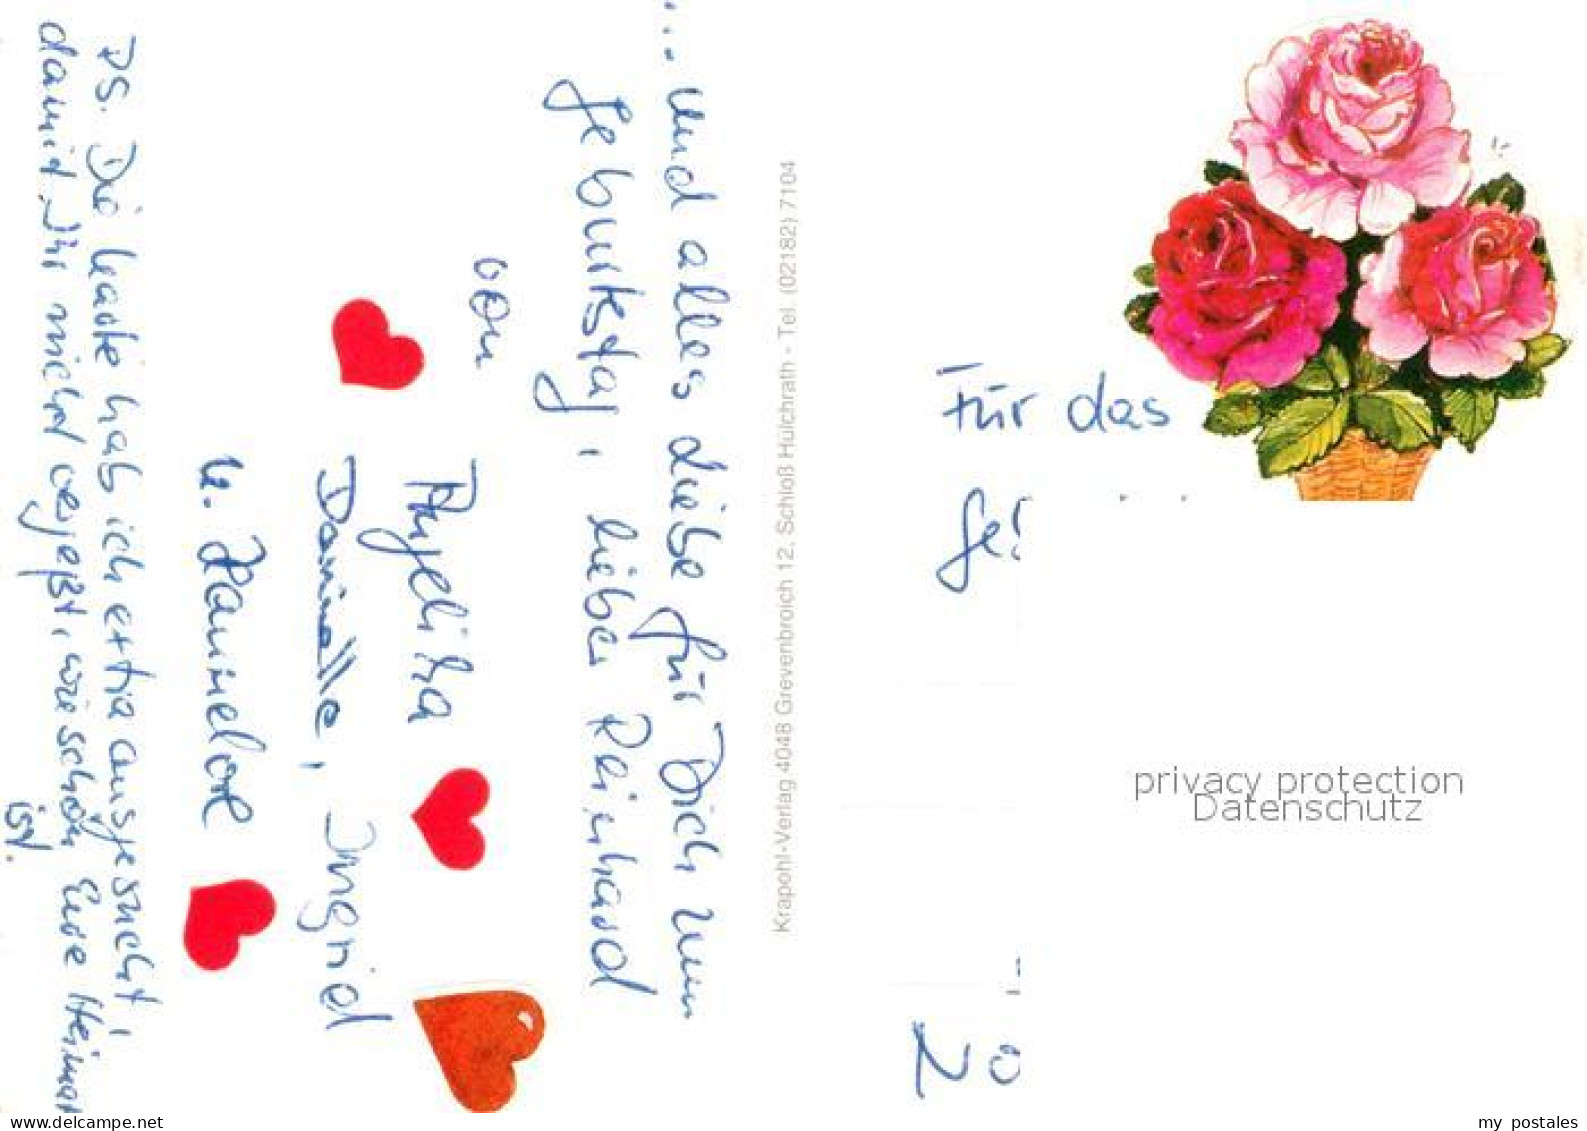 ... und alles Liebe für Dich zum
Geburtstag, lieber Reinhard
von
Angelika
Danielle, Ingrid
u. Hannelore
PS. Die Karte hab ich extra ausgesucht,
damit Ihr nicht vergeßt, wie schön Eure Heimat
ist.
Krapohl-Verlag 4048 Grevenbroich 12, Schloß Hülchrath - Tel. (02182) 7104
Für das
Ge
20
privacy protection
Datenschutz
delcampe.net
my_postales